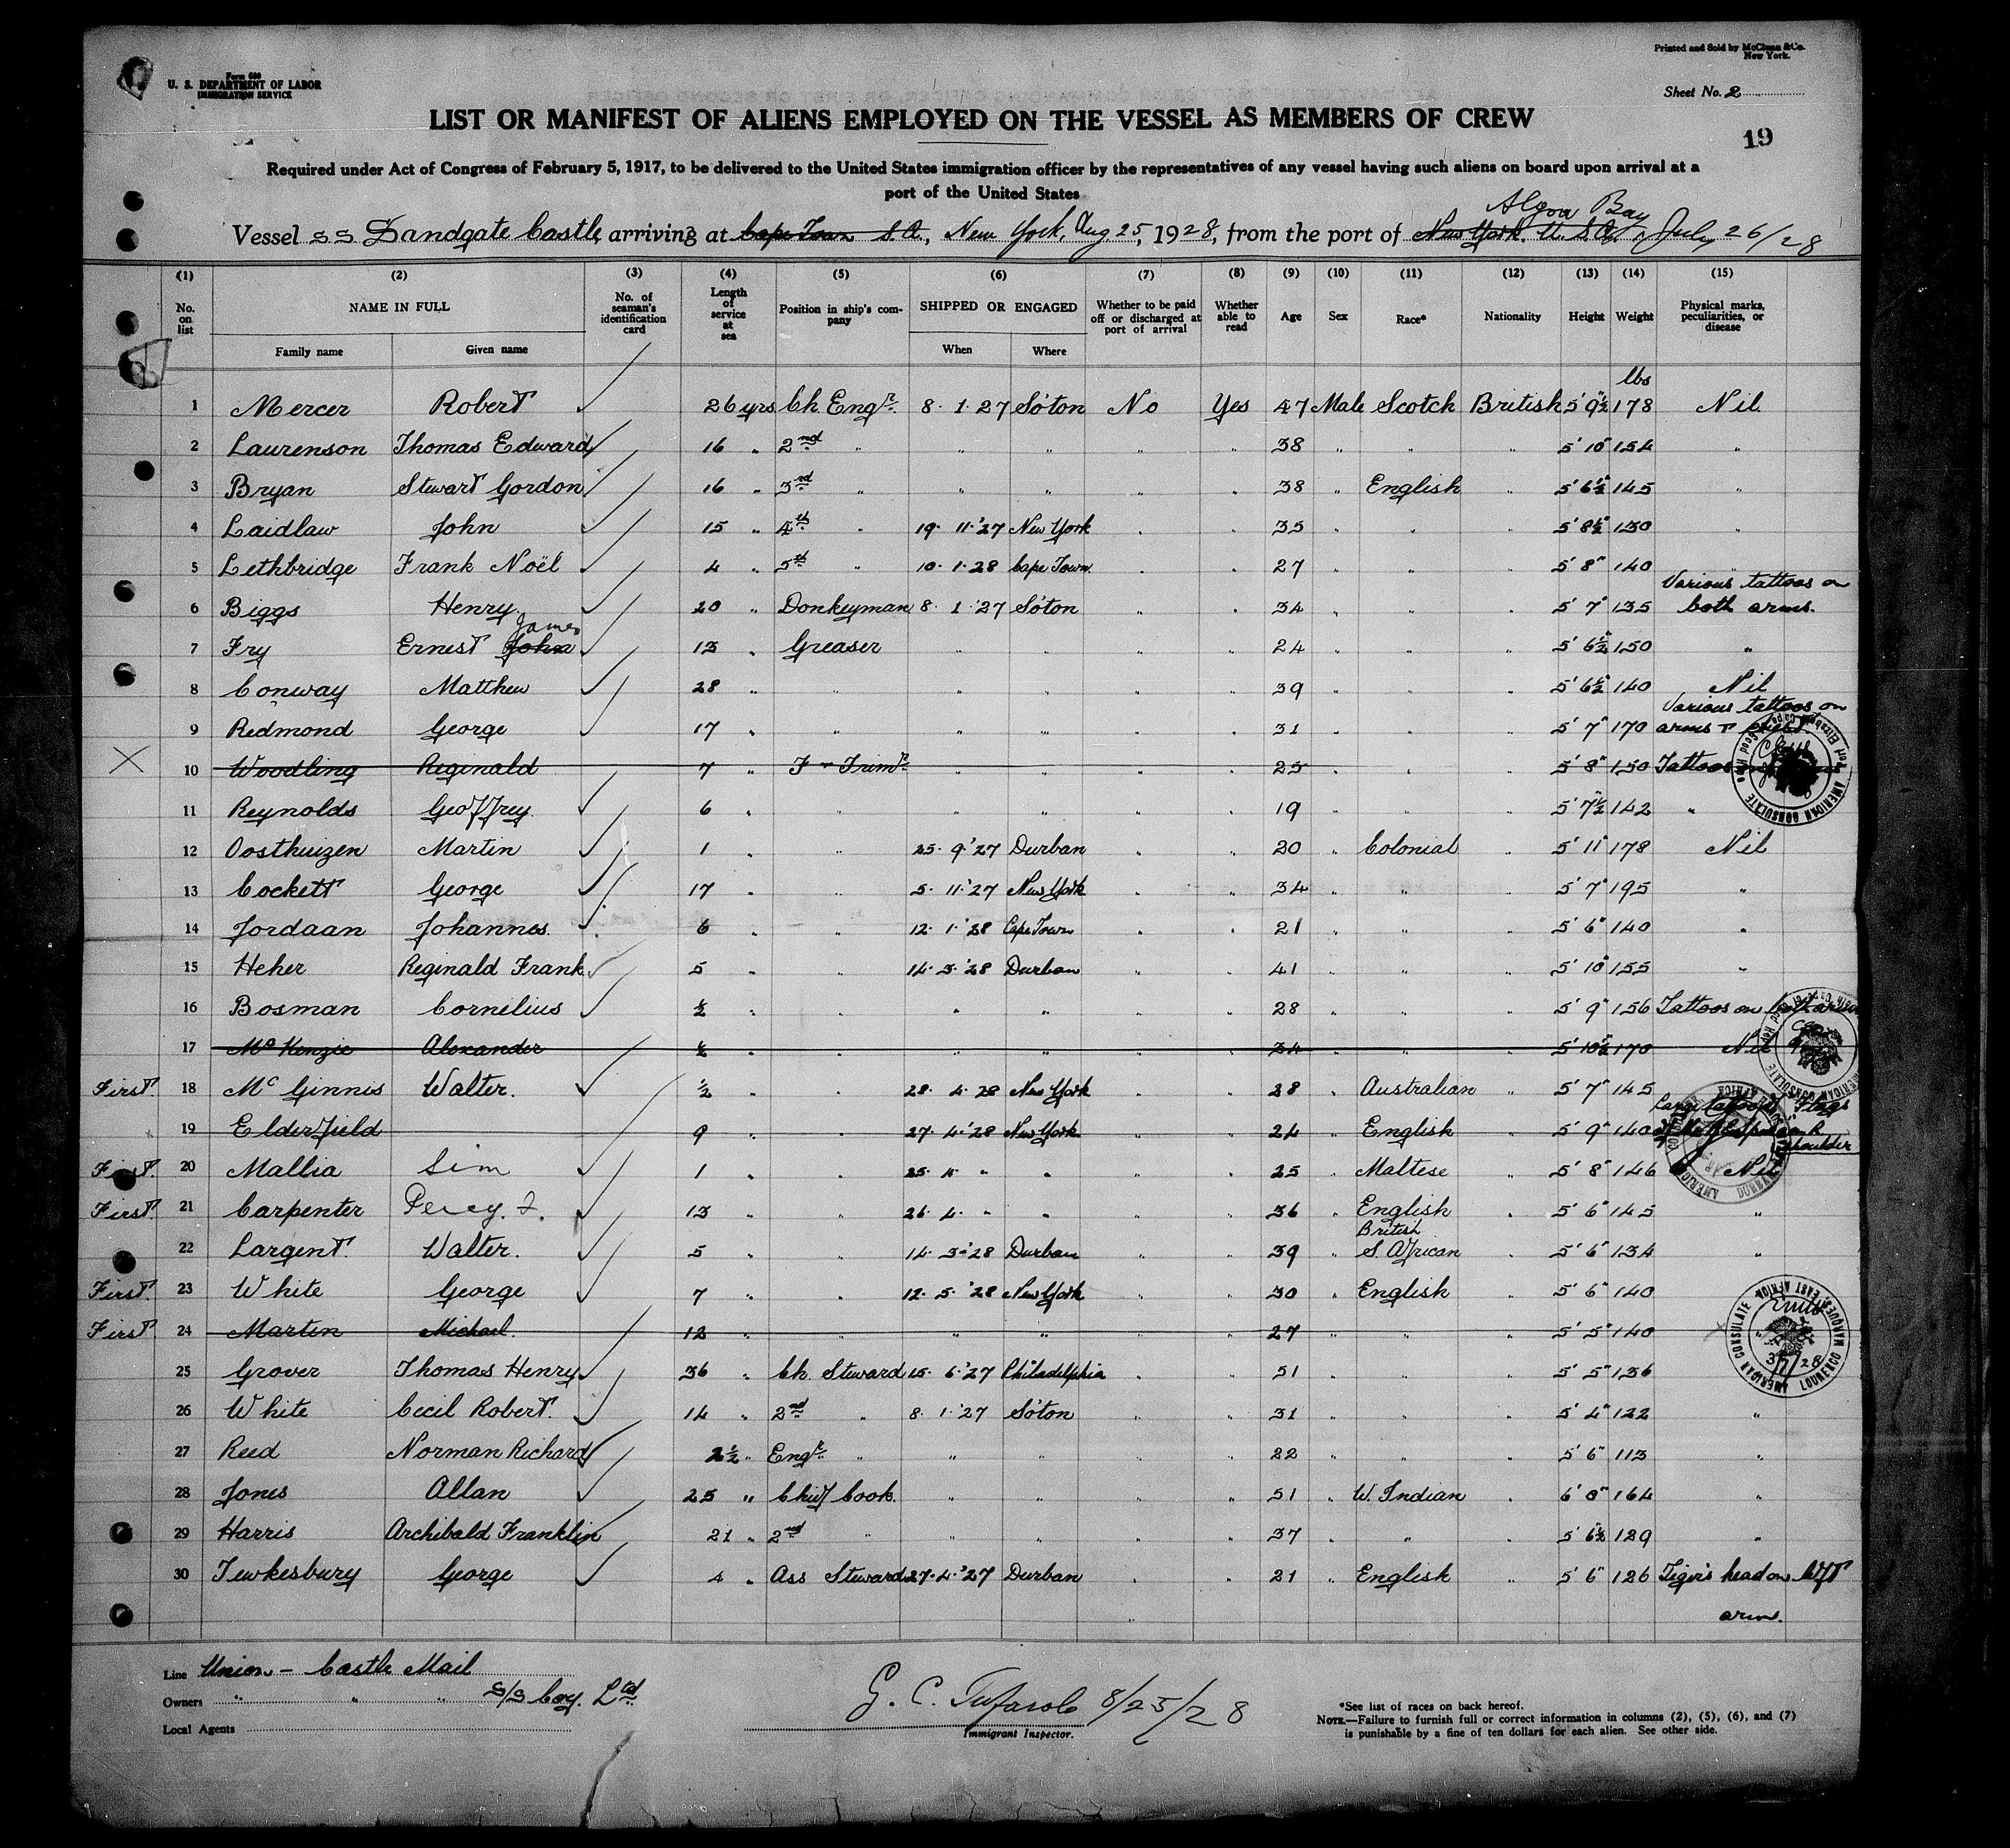 Printed and Sold by McClunn & Co.
New York.
Form 680
U. S. DEPARTMENT OF LABOR
IMMIGRATION SERVICE
Sheet No. 2
LIST OR MANIFEST OF ALIENS EMPLOYED ON THE VESSEL AS MEMBERS OF CREW
19
Required under Act of Congress of February 5, 1917, to be delivered to the United States immigration officer by the representatives of any vessel having such aliens on board upon arrival at a
port of the United States
Algoa Bay
Vessel SS Sandgate Castle, arriving at Cape Town S.A., New York, Aug. 25, 1928, from the port of New York. U.S.A., July 26/28
(1) (2) (3) (4) (5) (6) (7) (8) (9) (10) (11) (12) (13) (14) (15)
No. on list NAME IN FULL No. of seaman's identification card Length of service at sea Position in ship's company SHIPPED OR ENGAGED Whether to be paid off or discharged at port of arrival Whether able to read Age Sex Race* Nationality Height Weight Physical marks, peculiarities, or disease
Family name Given name When Where
lbs
1 Mercer Robert 26 yrs Ch. Engr. 8. 1. 27 So'ton No Yes 47 Male Scotch British 5' 9½" 178 Nil.
2 Laurenson Thomas Edward 16 " 2nd " " " " " 38 " " " 5' 10" 154 "
3 Bryan Stewart Gordon 16 " 3rd " " " " " 38 " English " 5' 6½" 145 "
4 Laidlaw John 15 " 4th " 19. 11. '27 New York " " 35 " " " 5' 8½" 130 "
5 Lethbridge Frank Noël 4 " 5th " 10. 1. 28 Cape Town. " " 27 " " " 5' 8" 140 "
Various tattoos on
6 Biggs Henry. 20 " Donkeyman 8. 1. '27 So'ton " " 34 " " " 5' 7" 135 both arms.
James
7 Fry Ernest John 13 " Greaser " " " " 24 " " " 5' 6½" 150 "
8 Conway Matthew 28 " " " " " " 39 " " " 5' 6½" 140 Nil
Various tattoos on
9 Redmond George 17 " " " " " " 31 " " " 5' 7" 170 arms & chest
10 Woodling Reginald 7 " F & Trimr. " " " " 25 " " " 5' 8" 150 Tattoos
11 Reynolds Geoffrey. 6 " " " " " " 19 " " " 5' 7½" 142 "
12 Oosthuizen Martin 1 " " 25. 9. '27 Durban " " 20 " Colonial " 5' 11" 178 Nil
13 Cockett George 17 " " 5. 11. '27 New York " " 34 " " " 5' 7" 195 "
14 Jordaan Johannes. 6 " " 12. 1. '28 Cape Town " " 21 " " " 5' 6" 140 "
15 Heher Reginald Frank 5 " " 14. 3. '28 Durban " " 41 " " " 5' 10" 155 "
16 Bosman Cornelius ½ " " " " " " 28 " " " 5' 9" 156 Tattoos on both arms
17 McKenzie Alexander ½ " " " " " " 34 " " " 5' 10½" 170 Nil
First. 18 McGinnis Walter. ½ " " 28. 4. 28 New York " " 28 " Australian " 5' 7" 145
Large tattoo of Flags
19 Elderfield 9 " " 27. 4. '28 New York " " 24 " English " 5' 9" 140 on R.
Shoulder
First. 20 Mallia Sim 1 " " 25. 4. " " " " 25 " Maltese " 5' 8" 146 Nil
First. 21 Carpenter Percy. J. 13 " " 26. 4. " " " " 36 " English " 5' 6" 145 "
British
22 Largent. Walter. 5 " " 14. 3. '28 Durban " " 39 " S. African " 5' 6" 134 "
First. 23 White George 7 " " 12. 5. '28 New York " " 30 " English " 5' 6" 140
First. 24 Martin Michael. 12 " " " " " " 27 " " " 5' 5" 140
25 Grover Thomas Henry 36 " Ch. Steward 15. 6. '27 Philadelphia " " 51 " " " 5' 5" 136
26 White Cecil Robert. 14 " 2nd " 8. 1. '27 So'ton " " 31 " " " 5' 4" 122 "
27 Reed Norman Richard 2½ " Engr. " " " " " 22 " " " 5' 6" 113 "
28 Jones Allan 25 " Chief Cook. " " " " 51 " W. Indian " 6' 0" 164 "
29 Harris Archibald Franklin 21 " 2nd " " " " " 37 " " " 5' 6½" 129 "
30 Tewkesbury George 4 " Ass Steward 27. 4. '27 Durban " " 21 " English " 5' 6" 126 Tiger's head on left
arm.
Line Union - Castle Mail
Owners " " " S/S Coy. Ltd.
Local Agents
G. C. 8/25/28
Immigrant Inspector.
*See list of races on back hereof.
NOTE.—Failure to furnish full or correct information in columns (2), (5), (6), and (7)
is punishable by a fine of ten dollars for each alien. See other side.
AMERICAN CONSULATE
AMERICAN CONSULATE
AMERICAN CONSULATE LOURENCO MARQUES, EAST AFRICA.
3/7/28